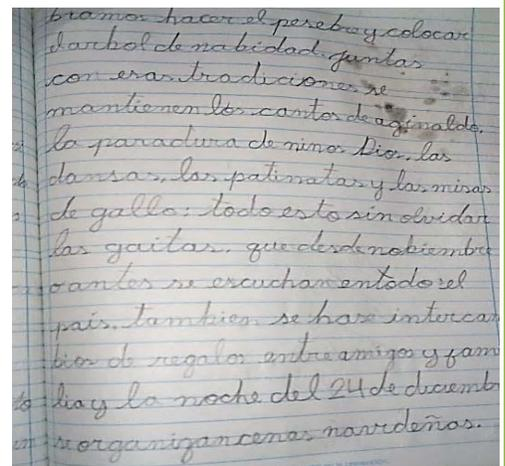 bramos hacer el pesebre y colocar
darbol de nabidad. juntas
con esas tradiciones se
mantienen los cantos de aginaldo,
la paradura de ninos Dios, las
dansas, las patinatas y las misas
de gallo: todo esto sin olvidar
las gaitas. que desde nobiembre
oantes se escuchan entodo el
país. tambien se hase intercan
bios de regalos entre amigos y fam
lia y la noche del 24 de diciemb
se organizan cenas navideñas.